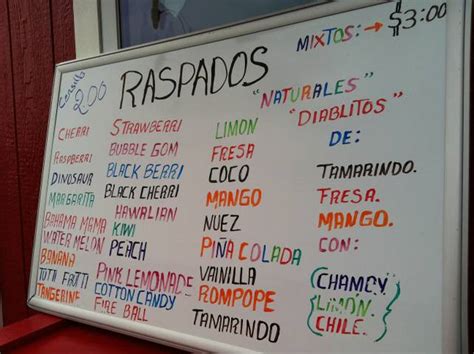 2.00
RASPADOS
MIXTOS: → $3:00
CHERRI
RASPBERRI
DINOSAUR
MARGARITA
BAHAMA MAMA
WATER MELON
BANANA
TUTTI FRUTTI
TANGERINE
STRAWBERRI
BUBBLE GOM
BLACK BERRI
BLACK CHERRI
HAWAIIAN
KIWI
PEACH
PINK LEMONADE
COTTON CANDY
FIRE BALL
"NATURALES"
LIMON
FRESA
COCO
MANGO
NUEZ
PIÑA COLADA
VAINILLA
ROMPOPE
TAMARINDO
"DIABLITOS"
DE:
TAMARINDO.
FRESA.
MANGO.
CON:
(CHAMOY.
LIMÓN.
CHILE.)